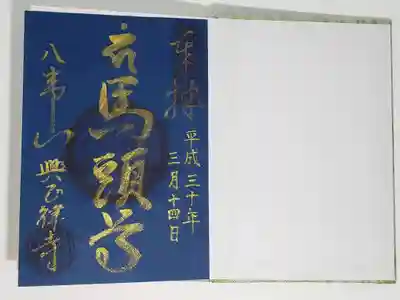 奉拝
平成三十年
三月十四日
馬頭尊
八事山
興正律寺